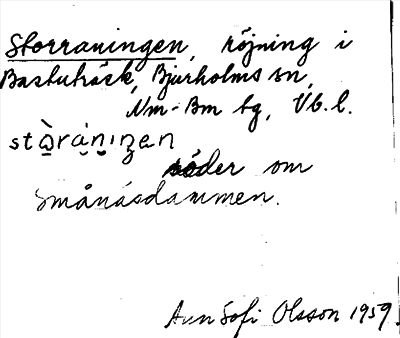 Storraningen, röjning i
Bastuträsk, Bjurholms sn,
Nm-Bm tg, Vb. l.
stɷ̀ráṇıŋen
söder om
Smånäsdammen.
Ann Sofi Olsson 1959.